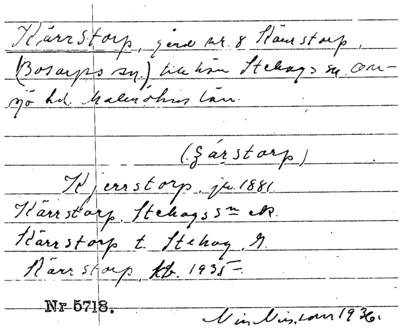 Kärrstorp, gård nr. 8 Kärrstorp,
(Bosarps sn.) tillhör Stehags sn. On-
sjö hd. Malmöhus län.
(Sárstorp)
Kjerrstorp, ju. 1881
Kärrstorp. Stehags sn ek.
Kärrstorp t. Stehag, G.
Kärrstorp, kb. 1935
Nr 5718.
1936.